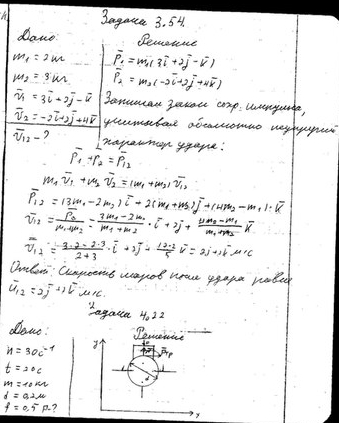 Задача 3.54.
Дано:
m₁ = 2 кг
m₂ = 3 кг
v̄₁ = 3ī+2j̄-k̄
v̄₂ = -2ī+2j̄+4k̄
v̄₁₂ - ?
Решение
P̄₁ = m₁(3ī+2j̄-k̄)
P̄₂ = m₂(-2ī+2j̄+4k̄)
Запишем закон сохр. импульса,
учитывая абсолютно неупругий
характер удара:
P̄₁+P̄₂ = P̄₁₂
m₁v̄₁ + m₂v̄₂ = (m₁+m₂)v̄₁₂
P̄₁₂ = (3m₁-2m₂)ī + 2(m₁+m₂)j̄ + (4m₂-m₁)·k̄
v̄₁₂ = P̄₁₂/(m₁+m₂) = (3m₁-2m₂)/(m₁+m₂)·ī + 2j̄ + (4m₂-m₁)/(m₁+m₂) k̄
v̄₁₂ = (3·2-2·3)/(2+3)·ī + 2j̄ + (12-2)/5 k̄ = 2j̄+2k̄ м/с
Ответ: Скорость шаров после удара равна
v̄₁₂ = 2j̄+2k̄ м/с.
Задача 4.22
Дано:
n = 30 c⁻¹
t = 20 c
m = 10 кг
d = 0,2 м
f = 0,5 P-?
Решение
y
x
d